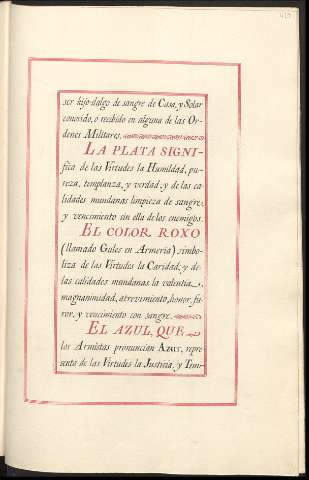 ser hijo-dalgo de sangre de Casa, y Solar
conocido, o recibido en alguna de las Or-
denes Militares.
LA PLATA SIGNI-
fica de las Virtudes la Humildad, pu-
reza, templanza, y verdad; y de las ca-
lidades mundanas limpieza de sangre,
y vencimiento sin ella de los enemigos.
EL COLOR ROXO
(llamado Gules en Armeria) simbo-
liza de las Virtudes la Caridad, y de
las calidades mundanas la valentia,
magnanimidad, atrevimiento, honor, fu-
ror, y vencimiento con sangre.
EL AZUL, QUE
los Armistas pronuncian AZUR, repre-
senta de las Virtudes la Justicia, y Tem-